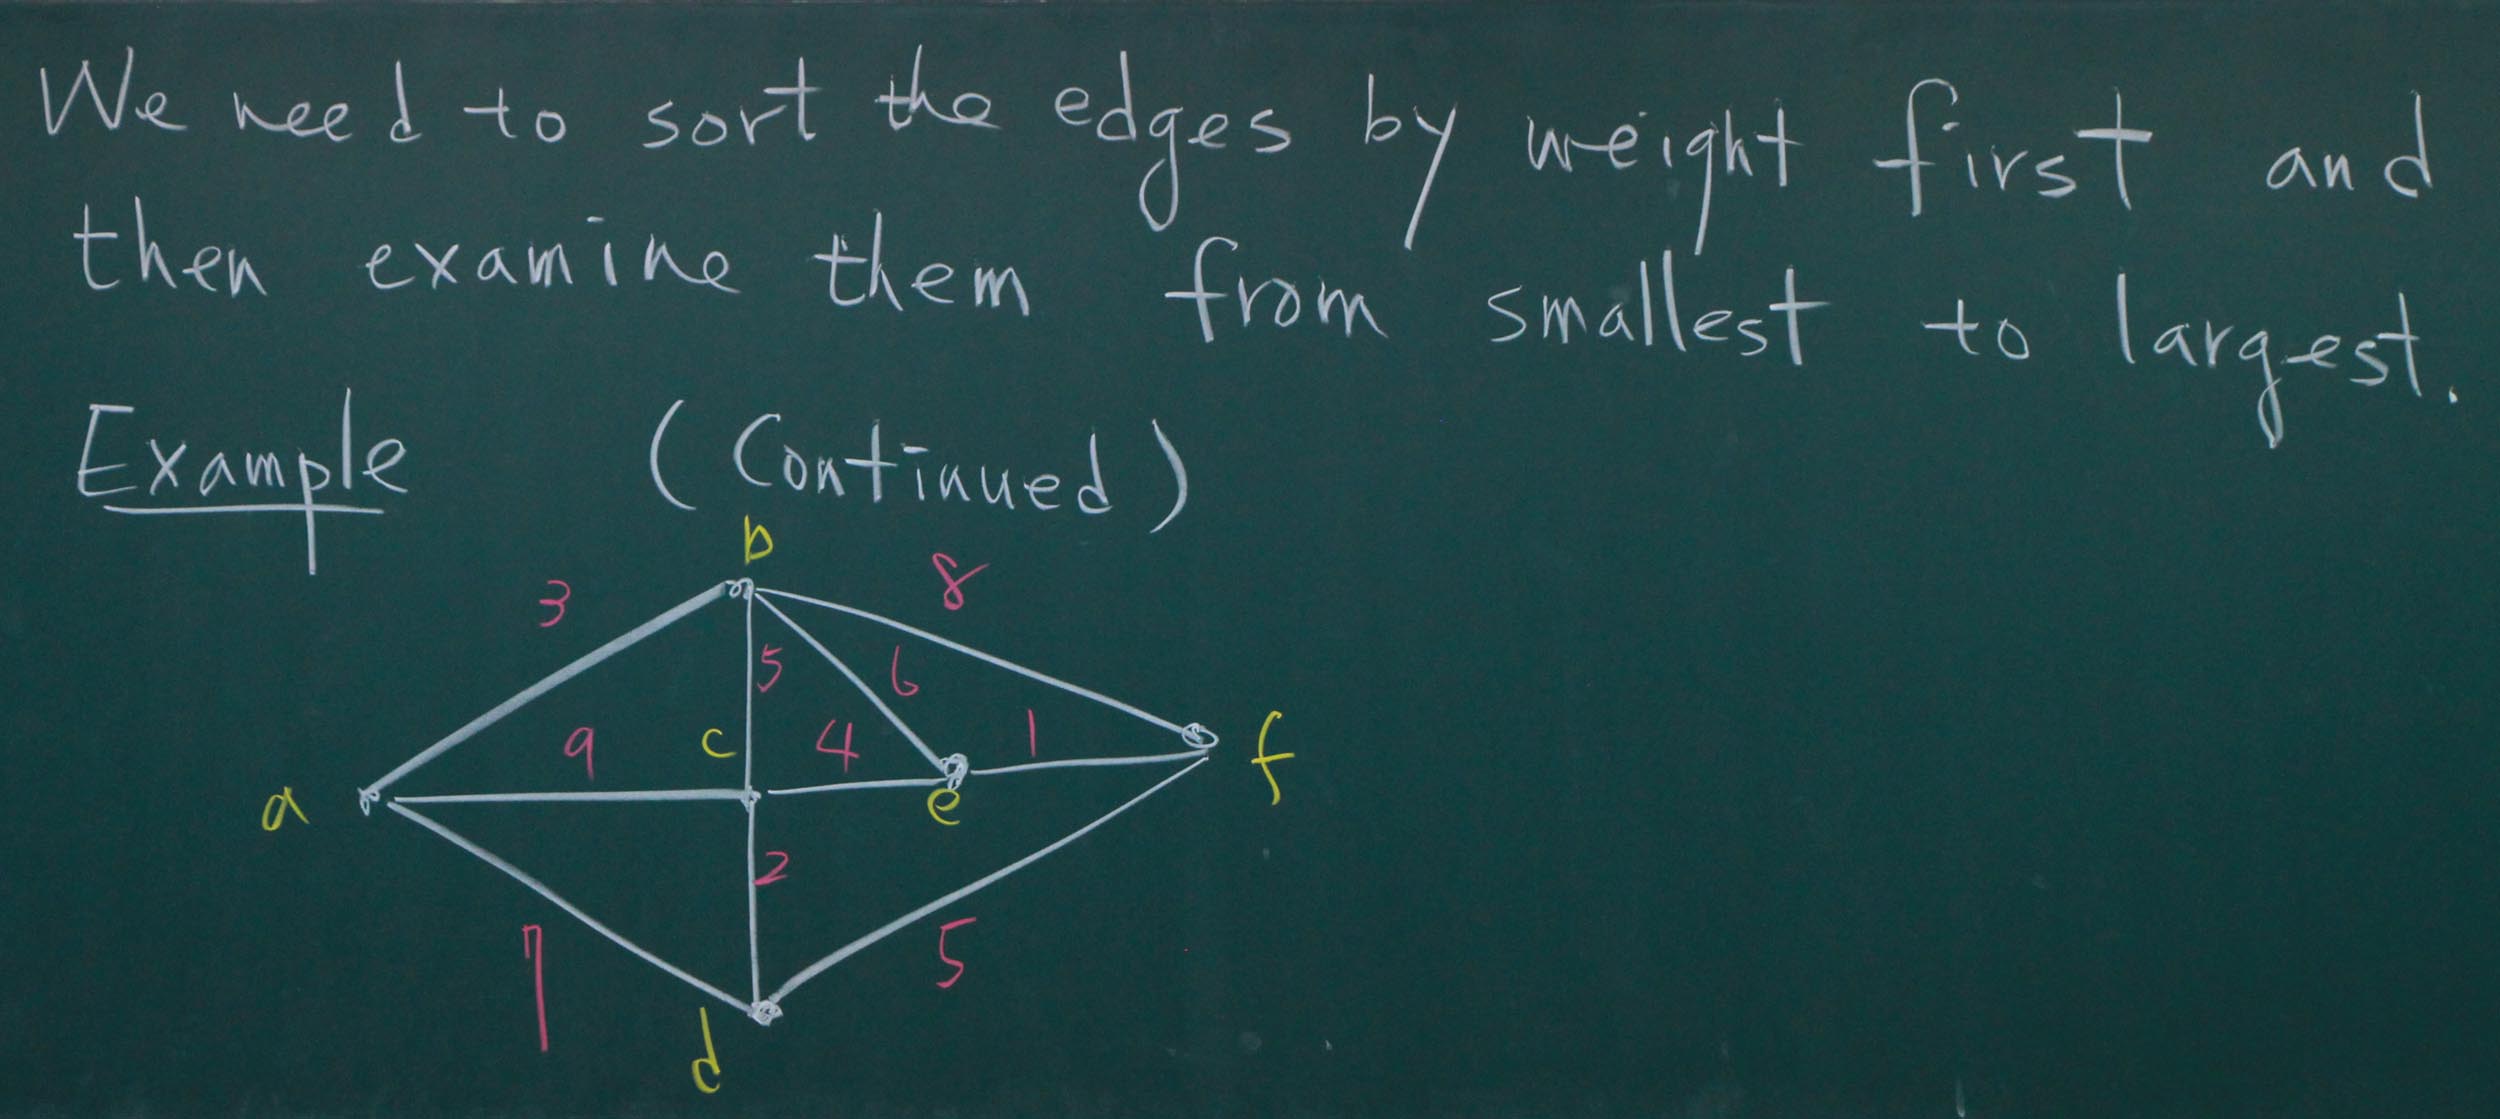 We need to sort the edges by weight first and
then examine them from smallest to largest.
Example (Continued)
b
3 8
5 6
9 c 4 1 f
a e
2
7 5
d